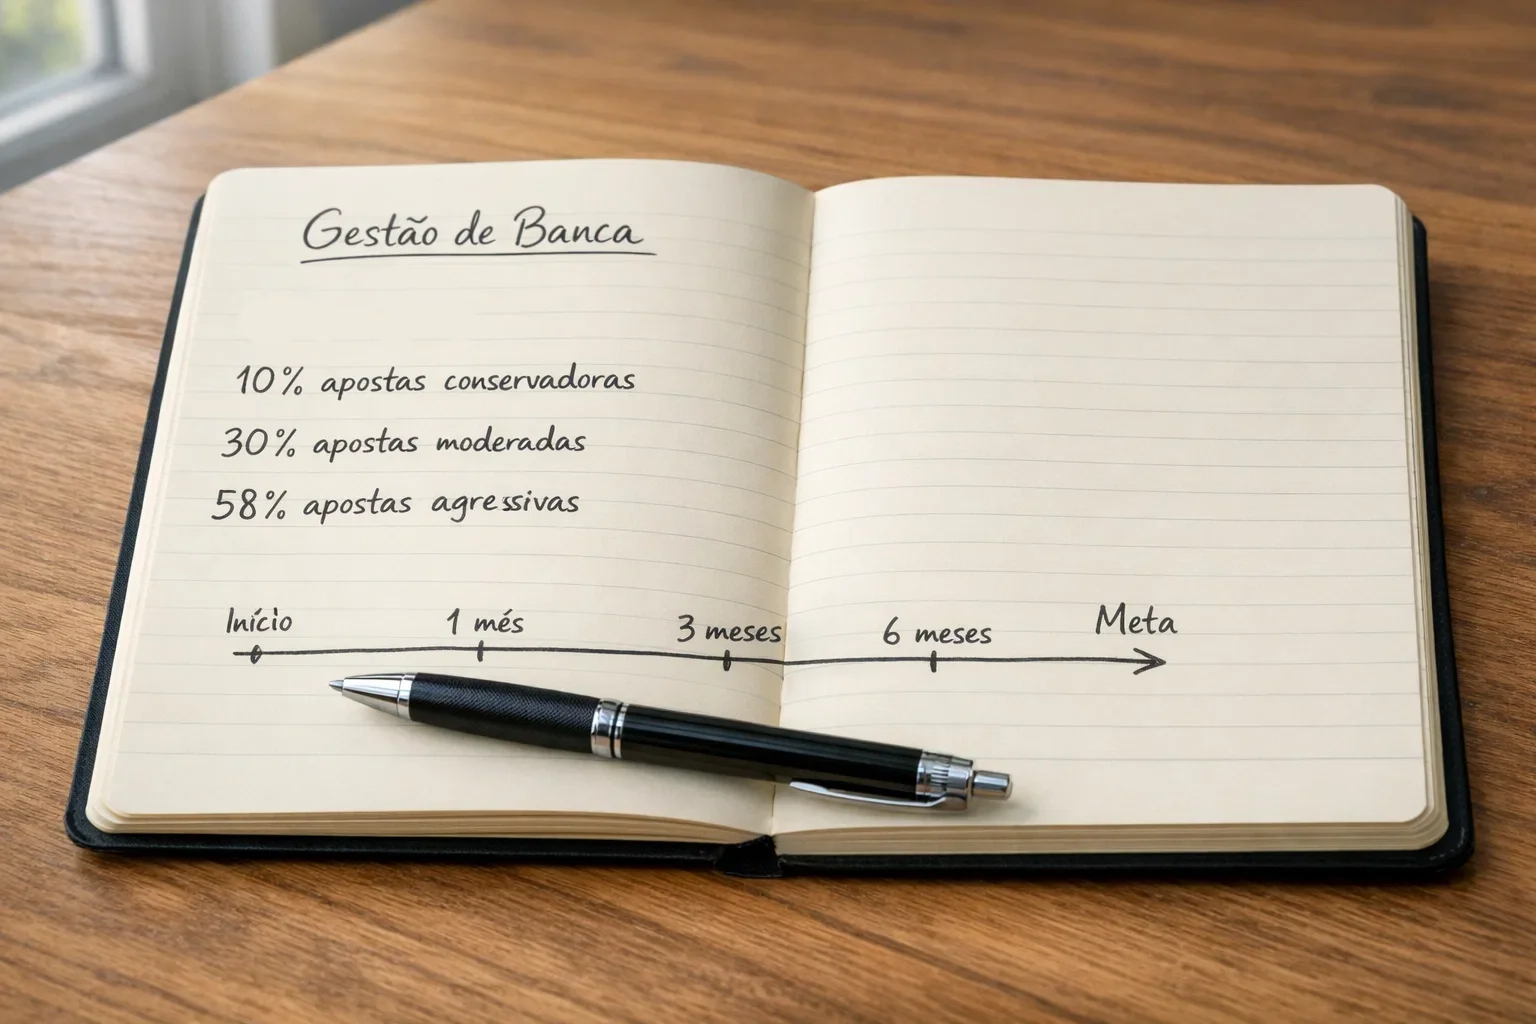 Gestão de Banca
10% apostas conservadoras
30% apostas moderadas
58% apostas agressivas
Início 1 més 3 meses 6 meses Meta